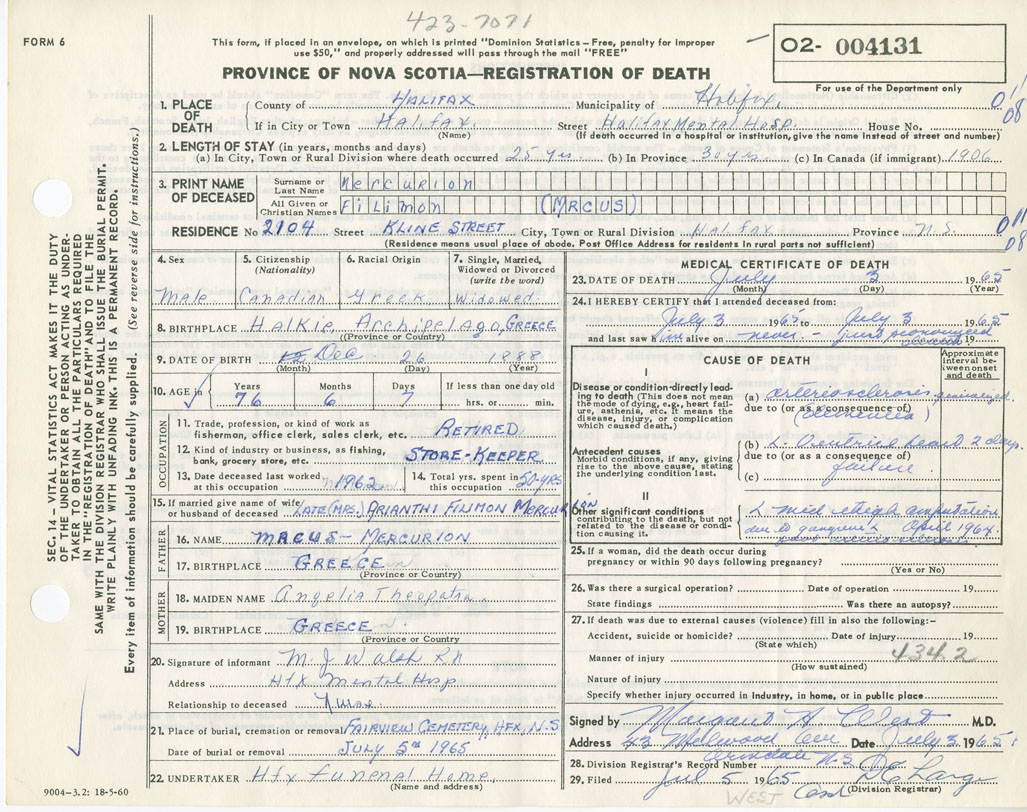 423-7071
FORM 6
This form, if placed in an envelope, on which is printed "Dominion Statistics – Free, penalty for improper
use $50," and properly addressed will pass through the mail "FREE"
O2- 004131
For use of the Department only
PROVINCE OF NOVA SCOTIA—REGISTRATION OF DEATH
SEC. 14 - VITAL STATISTICS ACT MAKES IT THE DUTY
OF THE UNDERTAKER OR PERSON ACTING AS UNDER-
TAKER TO OBTAIN ALL THE PARTICULARS REQUIRED
IN THE "REGISTRATION OF DEATH" AND TO FILE THE
SAME WITH THE DIVISION REGISTRAR WHO SHALL ISSUE THE BURIAL PERMIT.
WRITE PLAINLY WITH UNFADING INK-THIS IS A PERMANENT RECORD.
Every item of information should be carefully supplied. (See reverse side for instructions.)
1. PLACE OF DEATH
County of HALIFAX Municipality of Halifax.
If in City or Town Halifax. Street Halifax Mental Hosp. House No.
(Name) (If death occurred in a hospital or institution, give the name instead of street and number)
011
08
2. LENGTH OF STAY (in years, months and days)
(a) In City, Town or Rural Division where death occurred 25 yrs. (b) In Province 30 yrs. (c) In Canada (if immigrant) 1906
3. PRINT NAME OF DECEASED
Surname or Last Name Mercurion
All Given or Christian Names Filimon (MRCUS)
RESIDENCE No 2104 Street KLINE STREET City, Town or Rural Division Halifax Province N.S.
(Residence means usual place of abode. Post Office Address for residents in rural parts not sufficient)
011
08
4. Sex
Male
5. Citizenship (Nationality)
Canadian
6. Racial Origin
Greek
7. Single, Married, Widowed or Divorced (write the word)
Widowed
8. BIRTHPLACE Halkie, Archipelago, GREECE
(Province or Country)
9. DATE OF BIRTH Dec 26 1888
(Month) (Day) (Year)
10. AGE in
Years 76
Months 6
Days 7
If less than one day old
hrs. or min.
OCCUPATION
11. Trade, profession, or kind of work as
fisherman, office clerk, sales clerk, etc. RETIRED
12. Kind of industry or business, as fishing,
bank, grocery store, etc. STORE-KEEPER
13. Date deceased last worked
at this occupation 1962
14. Total yrs. spent in
this occupation 50 YRS
15. If married give name of wife
or husband of deceased LATE (MRS.) ARIANTHI FILIMON MERCURION
FATHER
16. NAME MACUS - MERCURION
17. BIRTHPLACE GREECE
(Province or Country)
MOTHER
18. MAIDEN NAME Angelia
19. BIRTHPLACE GREECE
(Province or Country
20. Signature of informant M. J Walsh RN
Address Hfx Mental Hosp
Relationship to deceased Nurse
21. Place of burial, cremation or removal FAIRVIEW CEMETERY, HFX, N.S
Date of burial or removal JULY 5TH 1965
22. UNDERTAKER Hfx Funenal Home.
(Name and address)
9004-3.2: 18-5-60
MEDICAL CERTIFICATE OF DEATH
23. DATE OF DEATH July 3 1965
(Month) (Day) (Year)
24. I HEREBY CERTIFY that I attended deceased from:
July 3 1965 to July 3 1965
and last saw him alive on never - just pronounced 19
CAUSE OF DEATH
Approximate interval between onset and death
I
Disease or condition-directly lead-
ing to death (This does not mean
the mode of dying, e.g., heart fail-
ure, asthenia, etc. It means the
disease, injury, or complication
which caused death.)
(a) arteriosclerosis generalized.
due to (or as a consequence of)
(dementia)
Antecedent causes
Morbid conditions, if any, giving
rise to the above cause, stating
the underlying condition last.
(b) L. Ventric heart 2 days
due to (or as a consequence of)
failure
(c)
II
Other significant conditions
contributing to the death, but not
related to the disease or condi-
tion causing it.
L mid thigh amputation
due to gangrene April 1964.
25. If a woman, did the death occur during
pregnancy or within 90 days following pregnancy?
(Yes or No)
26. Was there a surgical operation? Date of operation 19
State findings Was there an autopsy?
27. If death was due to external causes (violence) fill in also the following:-
Accident, suicide or homicide? Date of injury 19
(State which)
Manner of injury 434.2
(How sustained)
Nature of injury
Specify whether injury occurred in industry, in home, or in public place
Signed by Margaret A West M.D.
Address 43 Date July 3 1965
Armdale N.S
28. Division Registrar's Record Number
29. Filed Jul 5 1965 D C Large
(Division Registrar)
WEST